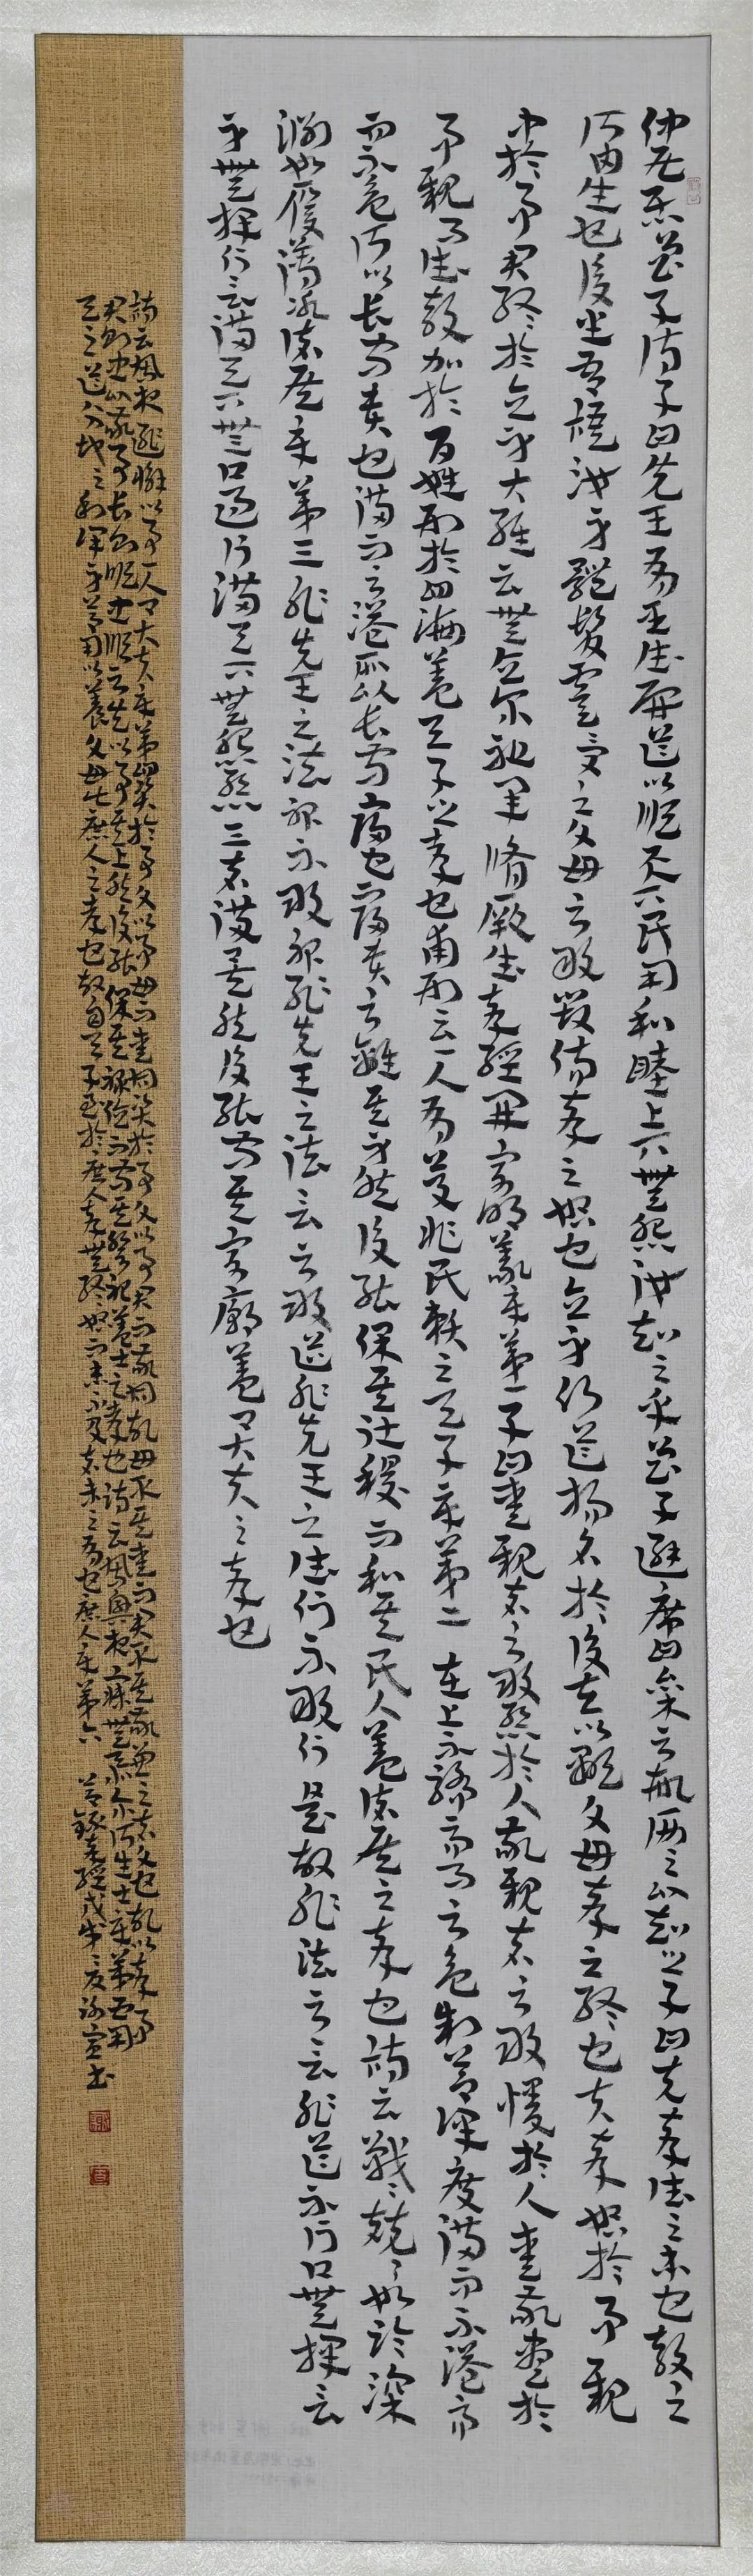 仲尼居曾子侍子曰先王有至德要道以順天下民用和睦上下無怨汝知之乎曾子避席曰參不敏何足以知之子曰夫孝德之本也教之
所由生也復坐吾語汝身體髮膚受之父母不敢毀傷孝之始也立身行道揚名於後世以顯父母孝之終也夫孝始於事親
中於事君終於立身大雅云無念爾祖聿脩厥德孝經開宗明義章第一子曰愛親者不敢惡於人敬親者不敢慢於人愛敬盡於
事親而德教加於百姓刑於四海蓋天子之孝也甫刑云一人有慶兆民賴之天子章第二 在上不驕高而不危制節謹度滿而不溢高
而不危所以長守貴也滿而不溢所以長守富也富貴不離其身然後能保其社稷而和其民人蓋諸侯之孝也詩云戰戰兢兢如臨深
淵如履薄冰諸侯章第三非先王之法服不敢服非先王之法言不敢道非先王之德行不敢行是故非法不言非道不行口無擇言
身無擇行言滿天下無口過行滿天下無怨惡三者備矣然後能守其宗廟蓋卿大夫之孝也
詩云夙夜匪懈以事一人卿大夫章第四資於事父以事母而愛同資於事父以事君而敬同故母取其愛而君取其敬兼之者父也故以孝事
君則忠以敬事長則順忠順不失以事其上然後能保其祿位而守其祭祀蓋士之孝也詩云夙興夜寐無忝爾所生士章第五用
天之道分地之利謹身節用以養父母此庶人之孝也故自天子至於庶人孝無終始而患不及者未之有也庶人章第六 節錄孝經戊戌夏謝宣書